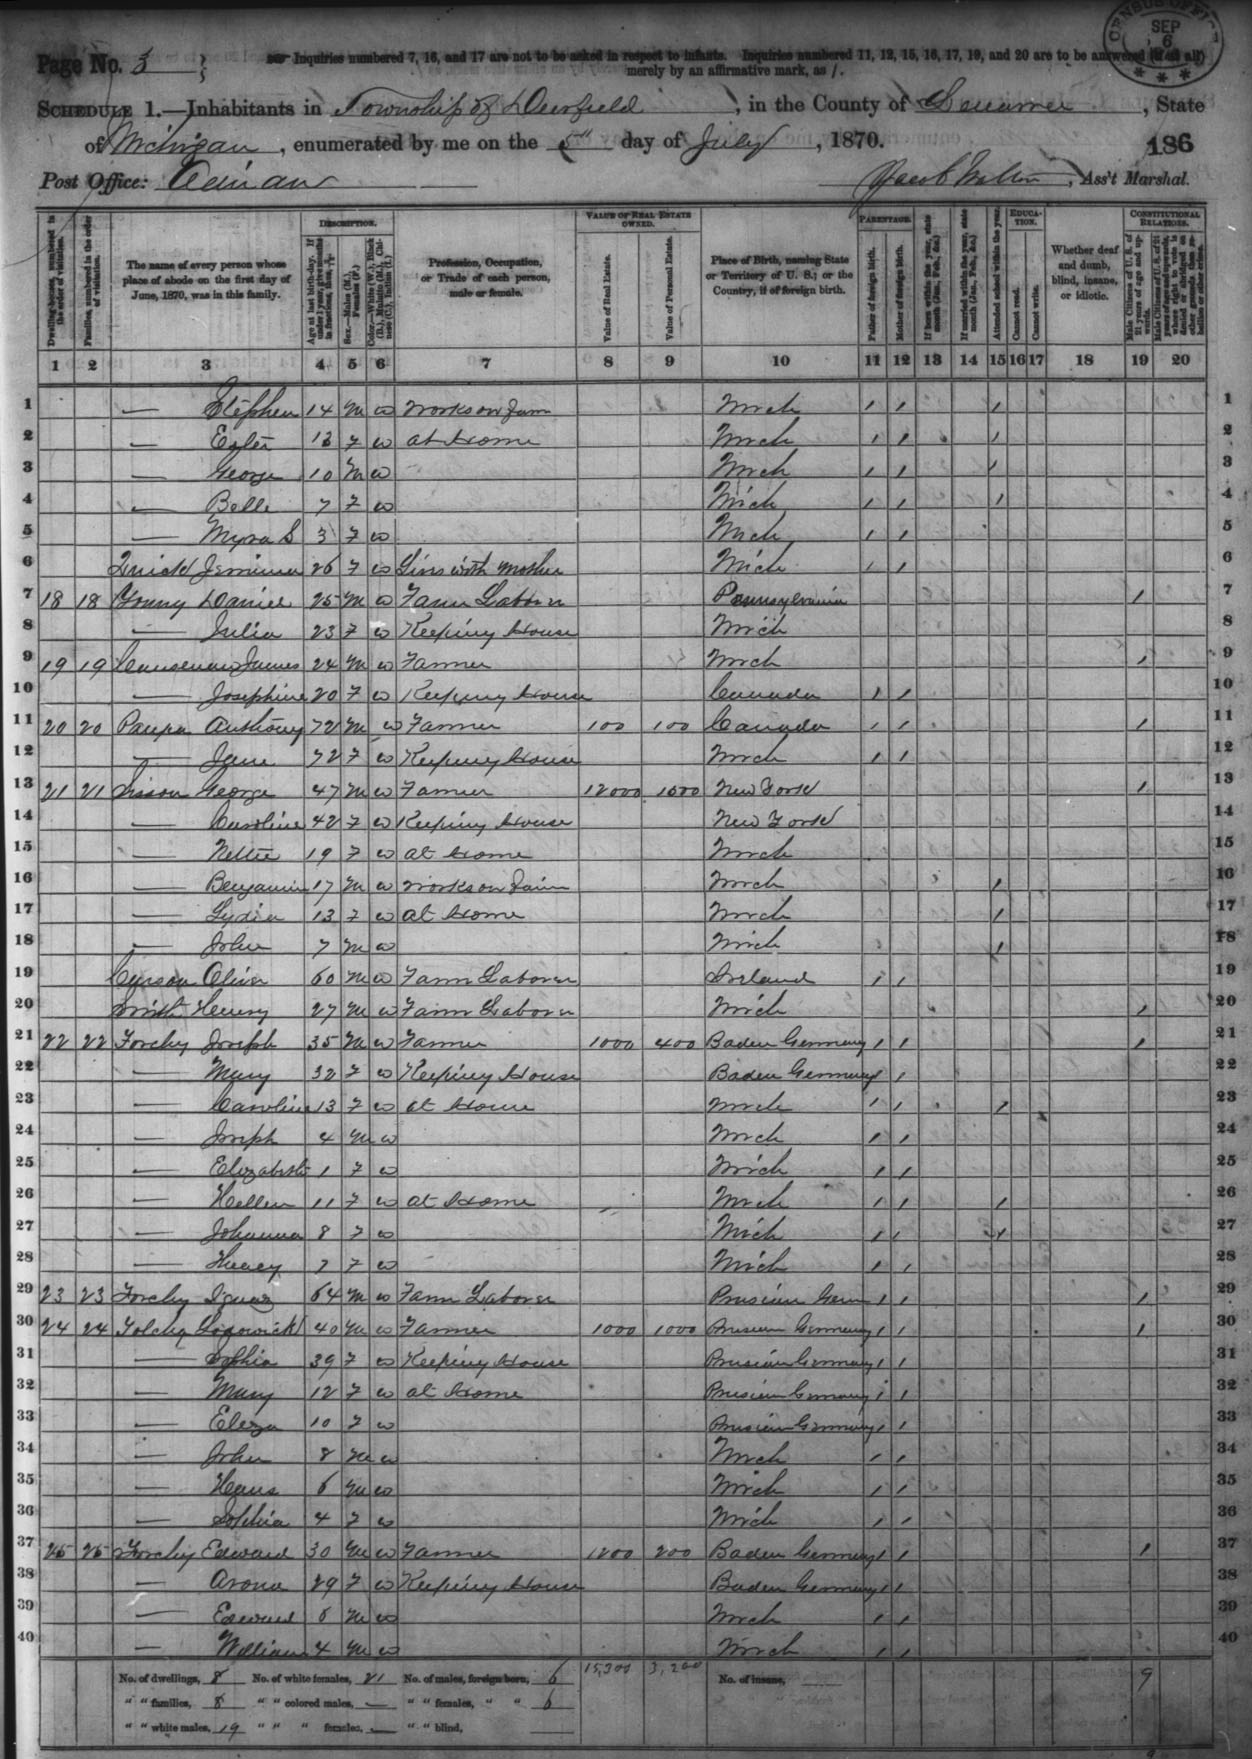 CENSUS OFFICE
SEP
6
Page No. 3
Inquiries numbered 7, 16, and 17 are not to be asked in respect to infants. Inquiries numbered 11, 12, 15, 16, 17, 19, and 20 are to be answered (if at all)
merely by an affirmative mark, as /.
SCHEDULE 1.—Inhabitants in Township of Deerfield, in the County of Lenawee, State
of Michigan, enumerated by me on the 5th day of July, 1870.
186
Post Office: Adrian
Jacob Walton, Ass't Marshal.
Dwelling-houses, numbered in the order of visitation.
Families, numbered in the order of visitation.
The name of every person whose place of abode on the first day of June, 1870, was in this family.
DESCRIPTION.
Age at last birth-day. If under 1 year, give months in fractions, thus, 3/12.
Sex.—Males (M.), Females (F.)
Color.—White (W.), Black (B.), Mulatto (M.), Chinese (C.), Indian (I.)
Profession, Occupation, or Trade of each person, male or female.
VALUE OF REAL ESTATE OWNED.
Value of Real Estate.
Value of Personal Estate.
Place of Birth, naming State or Territory of U. S.; or the Country, if of foreign birth.
PARENTAGE.
Father of foreign birth.
Mother of foreign birth.
If born within the year, state month (Jan., Feb., &c.)
If married within the year, state month (Jan., Feb., &c.)
Attended school within the year.
EDUCATION.
Cannot read.
Cannot write.
Whether deaf and dumb, blind, insane, or idiotic.
CONSTITUTIONAL RELATIONS.
Male Citizens of U. S. of 21 years of age and upwards.
Male Citizens of U. S. of 21 years of age and upwards, where right to vote is denied or abridged on other grounds than rebellion or other crime.
1 2 3 4 5 6 7 8 9 10 11 12 13 14 15 16 17 18 19 20
1 — Stephen 14 M W Works on Farm Mich / / / 1
2 — Ester 13 F W at Home Mich / / / 2
3 — George 10 M W Mich / / / 3
4 — Belle 7 F W Mich / / / 4
5 — Myra S 3 F W Mich / / 5
6 Quick Jemima 26 F W Lives with Mother Mich / / 6
7 18 18 Young Daniel 25 M W Farm Labor Pennsylvania / 7
8 — Julia 23 F W Keeping House Mich 8
9 19 19 James 24 M W Farmer Mich / 9
10 — Josephine 20 F W Keeping House Canada / / 10
11 20 20 Anthony 72 M W Farmer 100 100 Canada / / / 11
12 — Jane 72 F W Keeping House Mich / / 12
13 21 21 Sisson George 47 M W Farmer 12000 1500 New York / 13
14 — Caroline 42 F W Keeping House New York 14
15 — Nettie 19 F W at Home Mich 15
16 — Benjamin 17 M W Works on Farm Mich / 16
17 — Lydia 13 F W at Home Mich / 17
18 — John 7 M W Mich / 18
19 Oliver 60 M W Farm Laborer Ireland / / 19
20 Smith Henry 27 M W Farm Laborer Mich / 20
21 22 22 Forchy Joseph 35 M W Farmer 1000 400 Baden Germany / / / 21
22 — Mary 32 F W Keeping House Baden Germany / / 22
23 — Caroline 13 F W at Home Mich / / / 23
24 — Joseph 4 M W Mich / / 24
25 — Elizabeth 1 F W Mich / / 25
26 — Hellen 11 F W at Home Mich / / / 26
27 — Johanna 8 F W Mich / / / 27
28 — 7 F W Mich / / 28
29 23 23 Forchy Ignaz 64 M W Farm Laborer Prusian Germ / / / 29
30 24 24 40 M W Farmer 1000 1000 Prusian Germany / / / 30
31 — Sophia 39 F W Keeping House Prusian Germany / / 31
32 — Mary 12 F W at Home Prusian Germany / / 32
33 — Eliza 10 F W Prusian Germany / / 33
34 — John 8 M W Mich / / 34
35 — Hans 6 M W Mich / / 35
36 — Sophia 4 F W Mich / / 36
37 25 25 Forchy Edward 30 M W Farmer 1200 200 Baden Germany / / / 37
38 — 29 F W Keeping House Baden Germany / / 38
39 — Edward 6 M W Mich / / 39
40 — William 4 M W Mich / / 40
No. of dwellings, 8 No. of white females, 21 No. of males, foreign born, 6 15,300 3,200 No. of insane, 9
" " families, 8 " " colored males, — " " females, " " 6
" " white males, 19 " " " females, — " " blind,